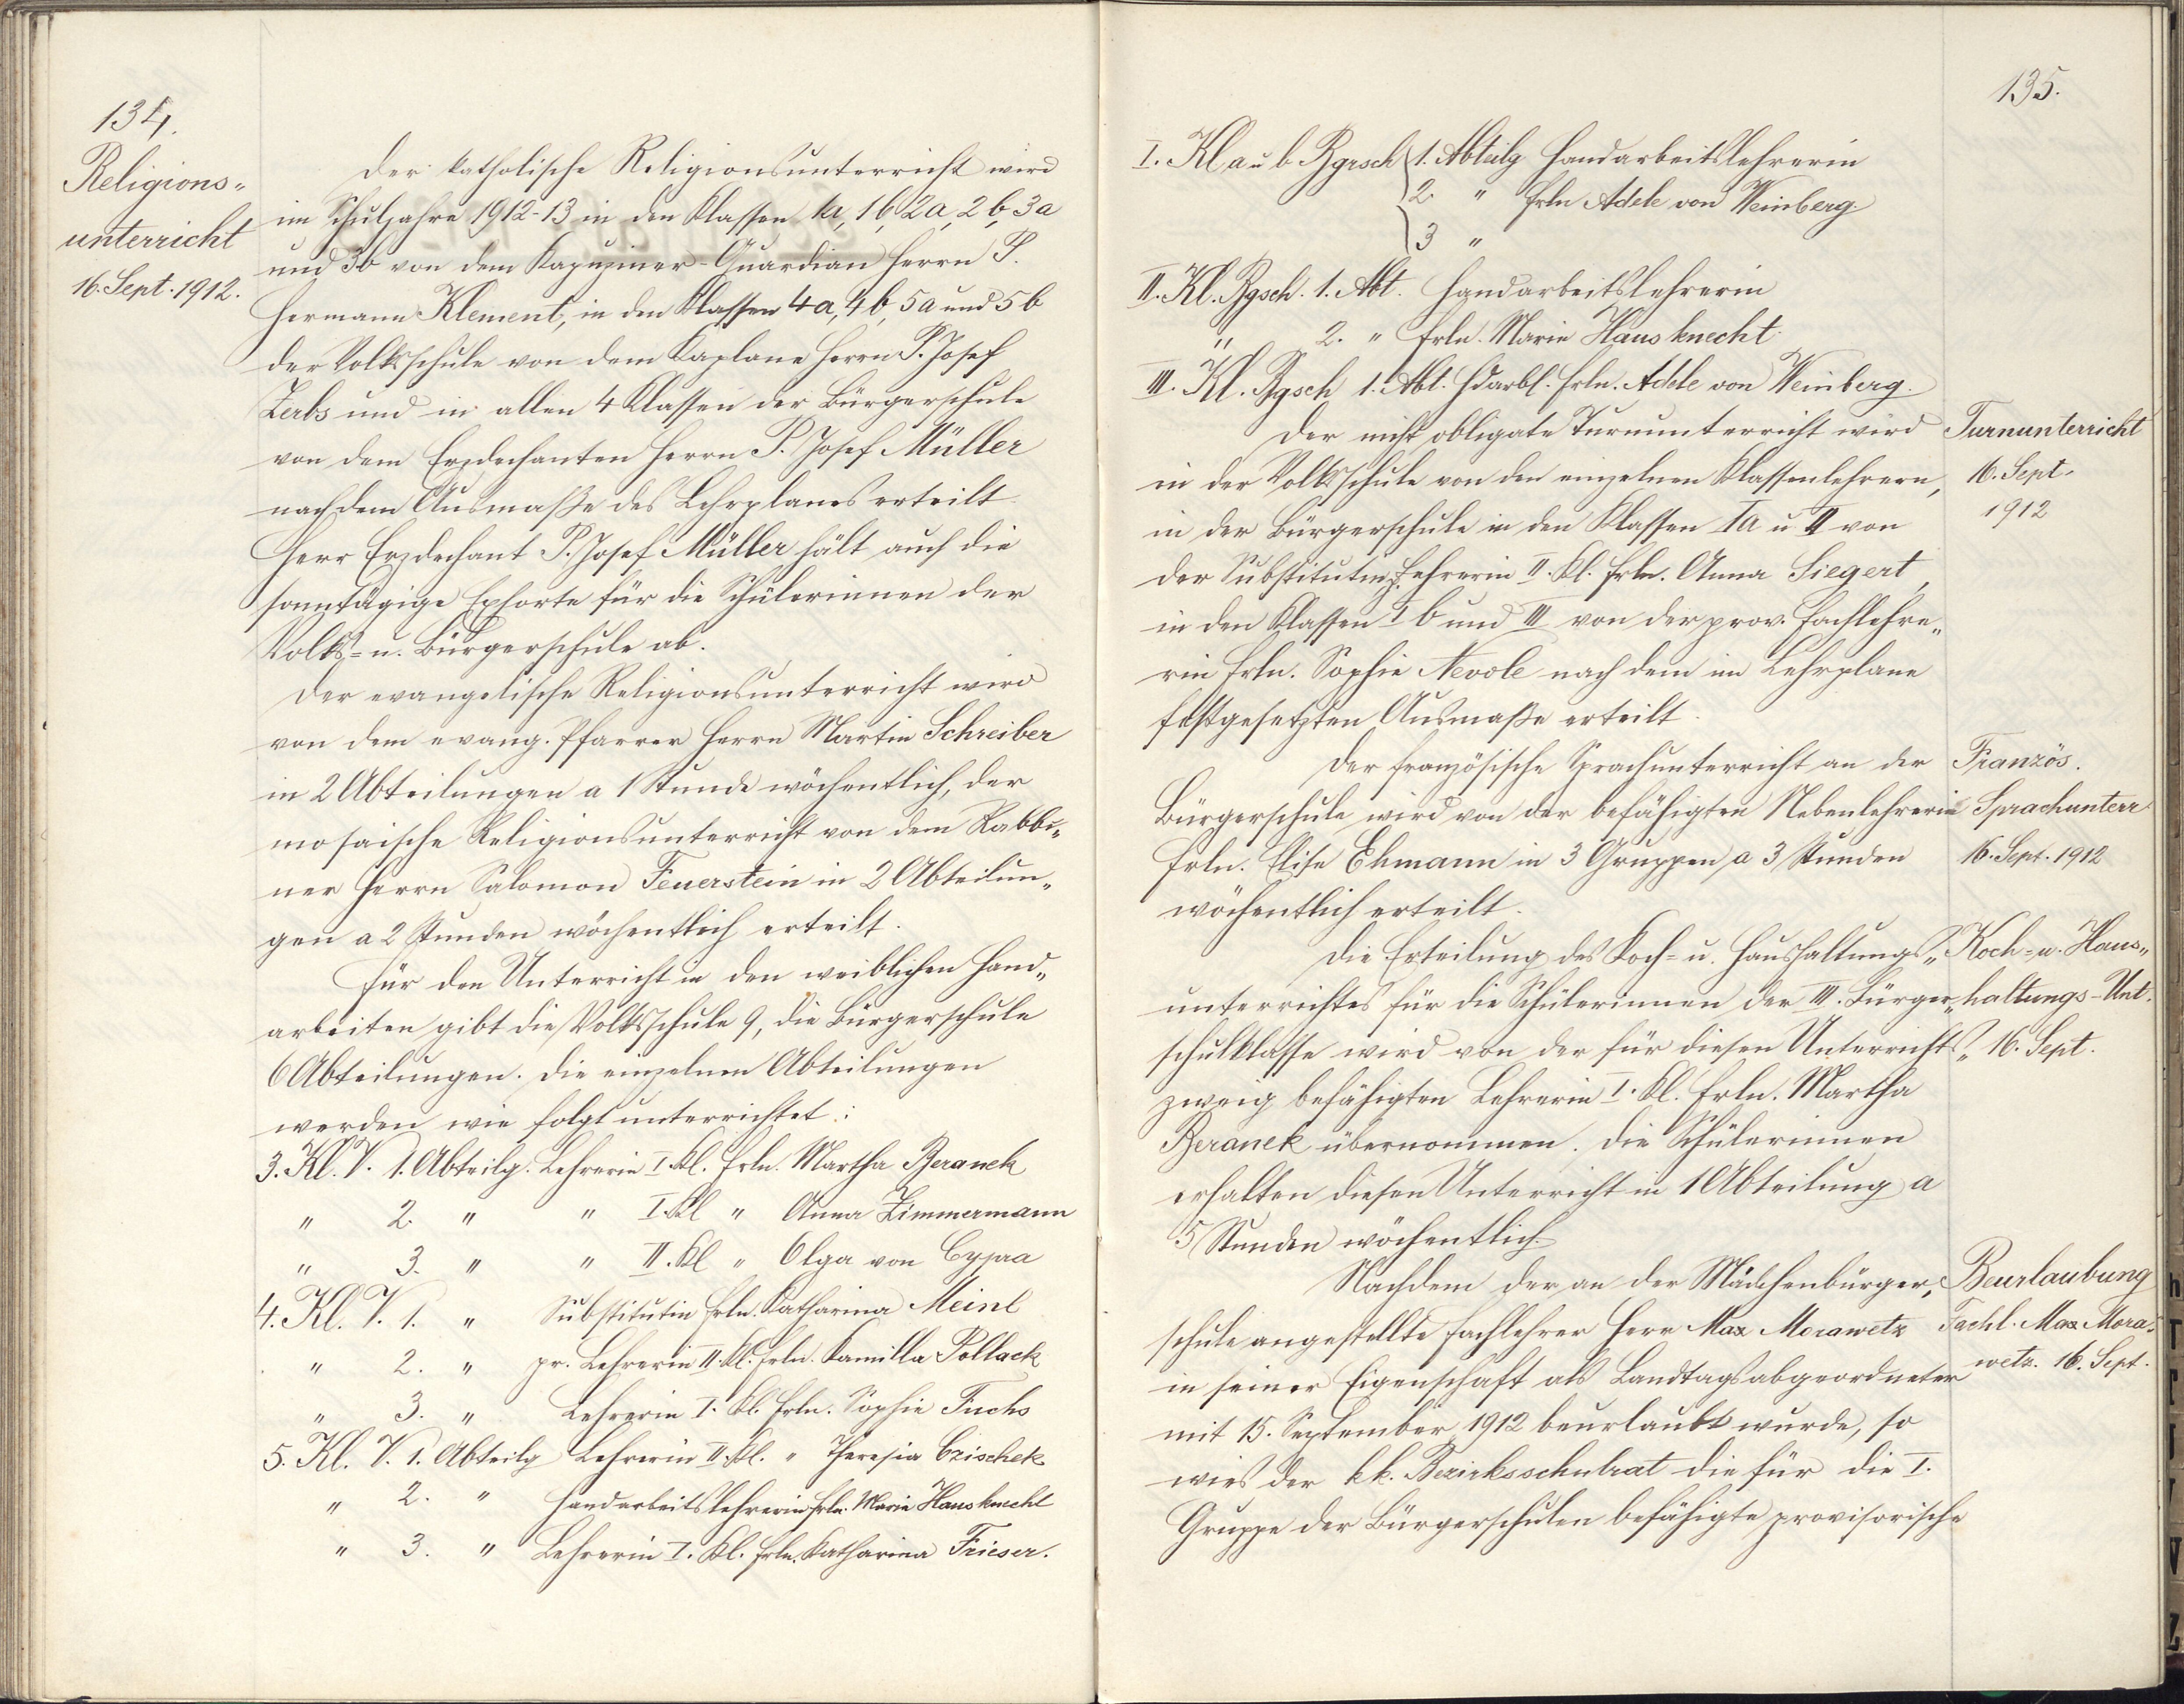 134.
Religions-
unterricht
16. Sept. 1912.
Der katholische Religionsunterricht wird
im Schuljahre 1912-13 in den Klassen 1a, 1b, 2a, 2b, 3a
und 3b von dem Kapuziner-Guardian Herrn P.
Hermann Klement, in den Klassen 4a, 4b, 5a und 5b
der Volksschule von dem Kaplane Herrn P. Josef
Zerbs und in allen 4 Klassen der Bürgerschule
von dem Erzdechanten Herrn P. Josef Müller
nach dem Ausmaße des Lehrplanes erteilt.
Herr Erzdechant P. Josef Müller hält auch die
sonntägige Exhorte für die Schülerinnen der
Volks- u. Bürgerschule ab.
Der evangelische Religionsunterricht wird
von dem evang. Pfarrer Herrn Martin Schreiber
in 2 Abteilungen a 1 Stunde wöchentlich, der
mosaische Religionsunterricht von dem Rabbi-
ner Herrn Salomon Feuerstein in 2 Abteilun-
gen a 2 Stunden wöchentlich erteilt.
Für den Unterricht in den weiblichen Hand-
arbeiten gibt die Volksschule 9, die Bürgerschule
6 Abteilungen. Die einzelnen Abteilungen
werden wie folgt unterrichtet:
3. Kl. V. 1. Abteilg. Lehrerin I. Kl. Frln. Martha Beranek
" 2. " " I. Kl " Anna Zimmermann
" 3. " " II. Kl " Olga von Cypra
4. Kl. V. 1. " Substitutin Frln. Katharina Meinl
" 2. " pr. Lehrerin II. Kl. Frln. Kamilla Pollack
" 3. " Lehrerin I. Kl. Frln. Sophie Fuchs
5. Kl. V. 1. Abteilg Lehrerin II. Kl. " Theresia Czischek
" 2. " Handarbeitslehrerin Frln. Marie Hausknecht
" 3. " Lehrerin I. Kl. Frln. Katharina Frieser.
135.
I. Kl a u b Bgrsch 1. Abteilg Handarbeitslehrerin
2. " Frln Adele von Weinberg
3 "
II. Kl. Bgsch. 1. Abt. Handarbeitslehrerin
" 2. " Frln. Marie Hausknecht
III. Kl. Bgsch 1. Abt. Hdarbl. Frln. Adele von Weinberg.
Der nicht obligate Turnunterricht wird
in der Volksschule von den einzelnen Klassenlehrern,
in der Bürgerschule in den Klassen Ia u II von
der Substitutin, Lehrerin II. Kl. Frln. Anna Siegert,
in den Klassen I b und III von der prov. Fachlehre-
rin Frln. Sophie Nevole nach dem im Lehrplane
festgesetzten Ausmaße erteilt.
Turnunterricht
16. Sept.
1912
Der französische Sprachunterricht an der
Bürgerschule wird von der befähigten Nebenlehrerin
Frln. Elise Ehmann in 3 Gruppen a 3 Stunden
wöchentlich erteilt.
Französ.
Sprachunterr
16. Sept. 1912
Die Erteilung des Koch- u. Haushaltungs-
unterrichtes für die Schülerinnen der III. Bürger-
schulklasse wird von der für diesen Unterrichts-
zweig befähigten Lehrerin I. Kl. Frln. Martha
Beranek übernommen. Die Schülerinnen
erhalten diesen Unterricht in 1 Abteilung a
5 Stunden wöchentlich.
Koch- u. Haus-
haltungs-Unt.
16. Sept.
Nachdem der an der Mädchenbürger-
schule angestellte Fachlehrer Herr Max Morawetz
in seiner Eigenschaft als Landtagsabgeordneter
mit 15. September 1912 beurlaubt wurde, so
wies der kk. Bezirksschulrat die für die I.
Gruppe der Bürgerschulen befähigte provisorische
Beurlaubung
Fachl. Max Mora-
wetz. 16. Sept.